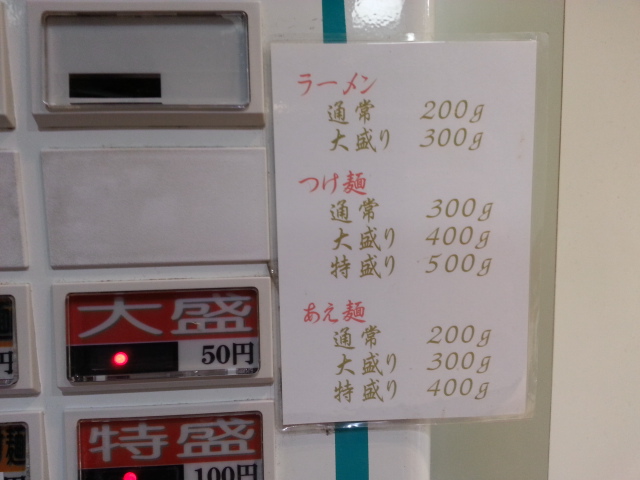 ラーメン
通常 200g
大盛り 300g
つけ麺
通常 300g
大盛り 400g
特盛り 500g
あえ麺
通常 200g
大盛り 300g
特盛り 400g
大盛
50円
特盛
100円
円